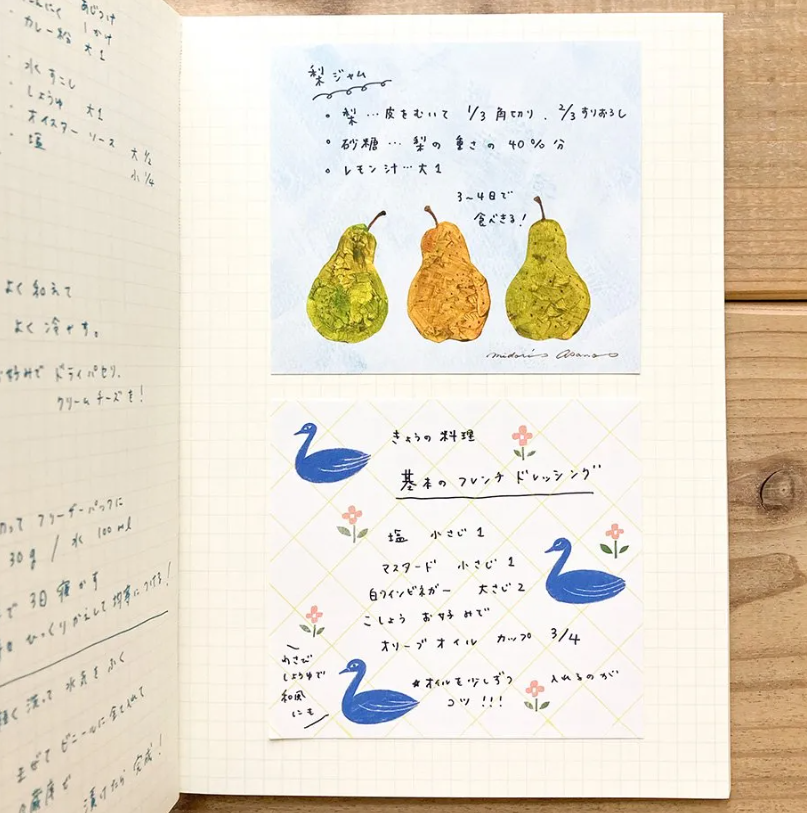 カレー粉 大1
・水 すこし
・しょうゆ 大1
・オイスターソース 大1/2
・塩 小1/4
よく和えて
よく冷やす。
好みで ドライパセリ、
クリームチーズを!
フリーザーパックに
30g / 水 100ml
で 3日 寝かす
ひっくりかえして 均等につける!
洗って 水気をふく
まぜて ビニールに全て入れて
漬けたら 完成!
梨ジャム
・梨…皮をむいて 1/3角切り、2/3すりおろし
・砂糖…梨の重さの40%分
・レモン汁…大1
3〜4日で
食べきる!
midoris asanos
きょうの料理
基本のフレンチドレッシング
塩 小さじ1
マスタード 小さじ1
白ワインビネガー 大さじ2
こしょう お好みで
オリーブオイル カップ 3/4
わさび
しょうゆで
和風
にも
★オイルを少しずつ 入れるのが
コツ!!!